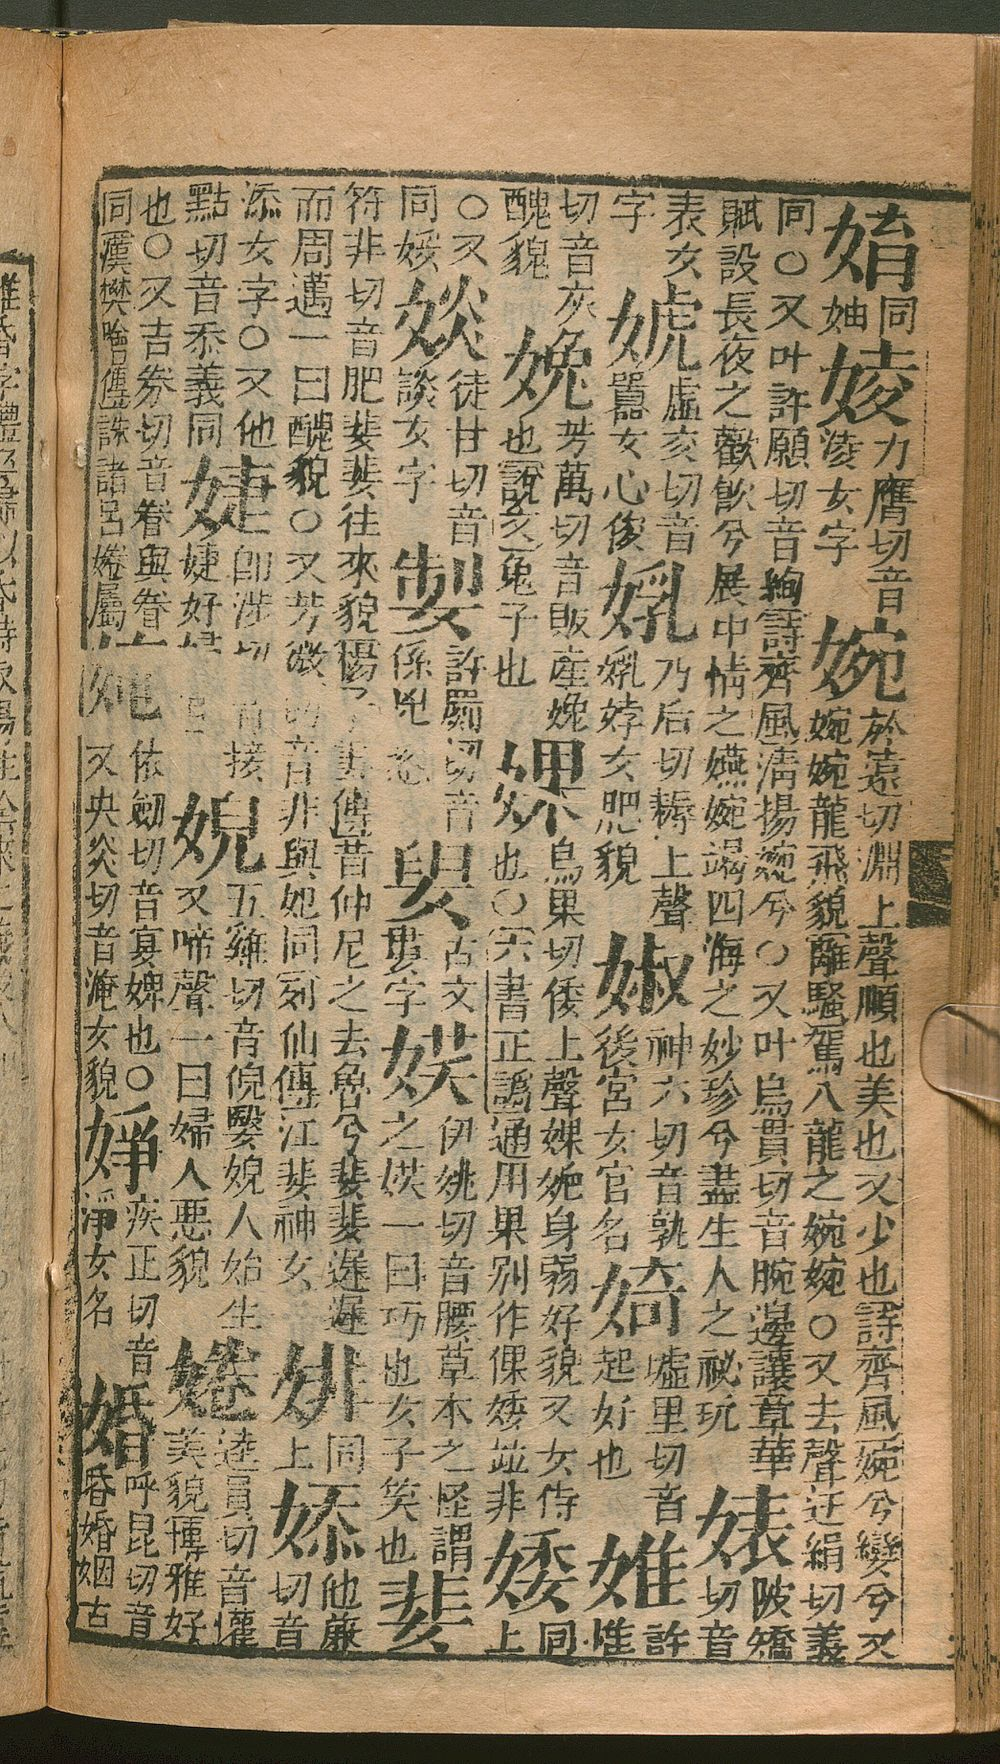 同妯婈力膺切音淩女字婉於遠切淵上聲順也美也又少也詩齊風婉兮孌兮又婉婉龍飛貌離騷駕八龍之婉婉○又去聲迂絹切義
同○又叶許願切音絢詩齊風淸揚婉兮○又叶烏貫切音腕邊讓章華賦設長夜之歡飮兮展中情之嬿婉竭四海之妙珍兮盡生人之祕玩婊陂矯切音
表女字婋虛交切音囂女心俊乃后切耨上聲女肥貌婌神六切音孰後宮女官名婍墟里切音起好也婎許惟
切音灰醜貌娩芳萬切音販産娩也說文兔子也婐烏果切倭上聲婐婗身弱好貌又女侍也○六書正譌通用果別作倮矮竝非婑同上
○又同娞婒徒甘切音談女字許罽切音係兇古文要字伊姚切音腰草木之怪謂之一曰巧也女子笑也婓
符非切音肥婓婓往來貌揚書傳昔仲尼之去魯兮婓婓遲遲而周邁一曰醜貌○又芳微切音非與妃同列仙傳江婓神女婔同上婖他廉切音
添女字○又他點切音忝義同婕卽涉切音接婕好婦官婗五雞切音倪嫛婗人始生又啼聲一曰婦人惡貌婘逵員切音懽美貌博雅好
也○又吉劵切音眷與眷同漢樊噲傳誅諸呂婘屬㛪依劒切音宴婢也○又央炎切音淹女貌婙疾正切音淨女名婚呼昆切音昏婚姻古